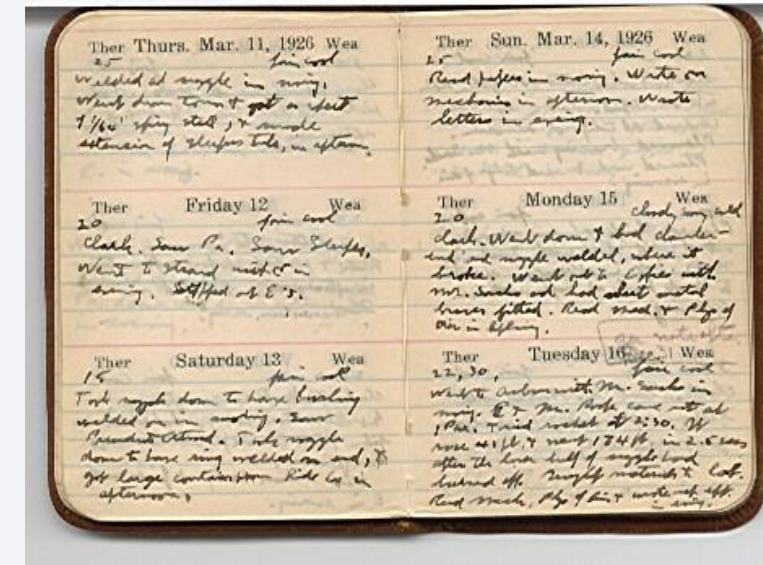 Ther Thurs. Mar. 11, 1926 Wea
25 fair cool
Welded at nozzle in morn.
Went down town & got a sheet
1/64" spring steel, & made
extension of in aftern.
Ther Friday 12 Wea
20 fair cool
Clark. Saw Pa. Saw
Went to Strand with E in
evening. Stopped at E's.
Ther Saturday 13 Wea
15 fair cool
Took nozzle down to have bushing
welded on in morning. Saw
President Atwood. Took nozzle
down to have ring welded on end, &
got large container from Co in
afternoon.
Ther Sun. Mar. 14, 1926 Wea
25 fair cool
Read papers in morn. Wrote on
mechanics in afternoon. Wrote
letters in evening.
Ther Monday 15 Wea
20 cloudy cold
Clark. Went down & had
end nozzle welded, where it
broke. Went out to with
Mr. Sachs and had sheet metal
fitted. Read Mech. & Phys of
Air in evening.
Ther Tuesday 16 Wea
22, 30, fair cool
Went to Auburn with Mr. Sachs in
morn. E & Mr. Roope came out at
1 P.M. tried rocket at 2:30. It
rose 41 ft. & went 184 ft, in 2.5 secs
after the lower half of nozzle had
burned off. Brought materials to Lab.
Read Mech., Phys of Air & wrote
in evng.